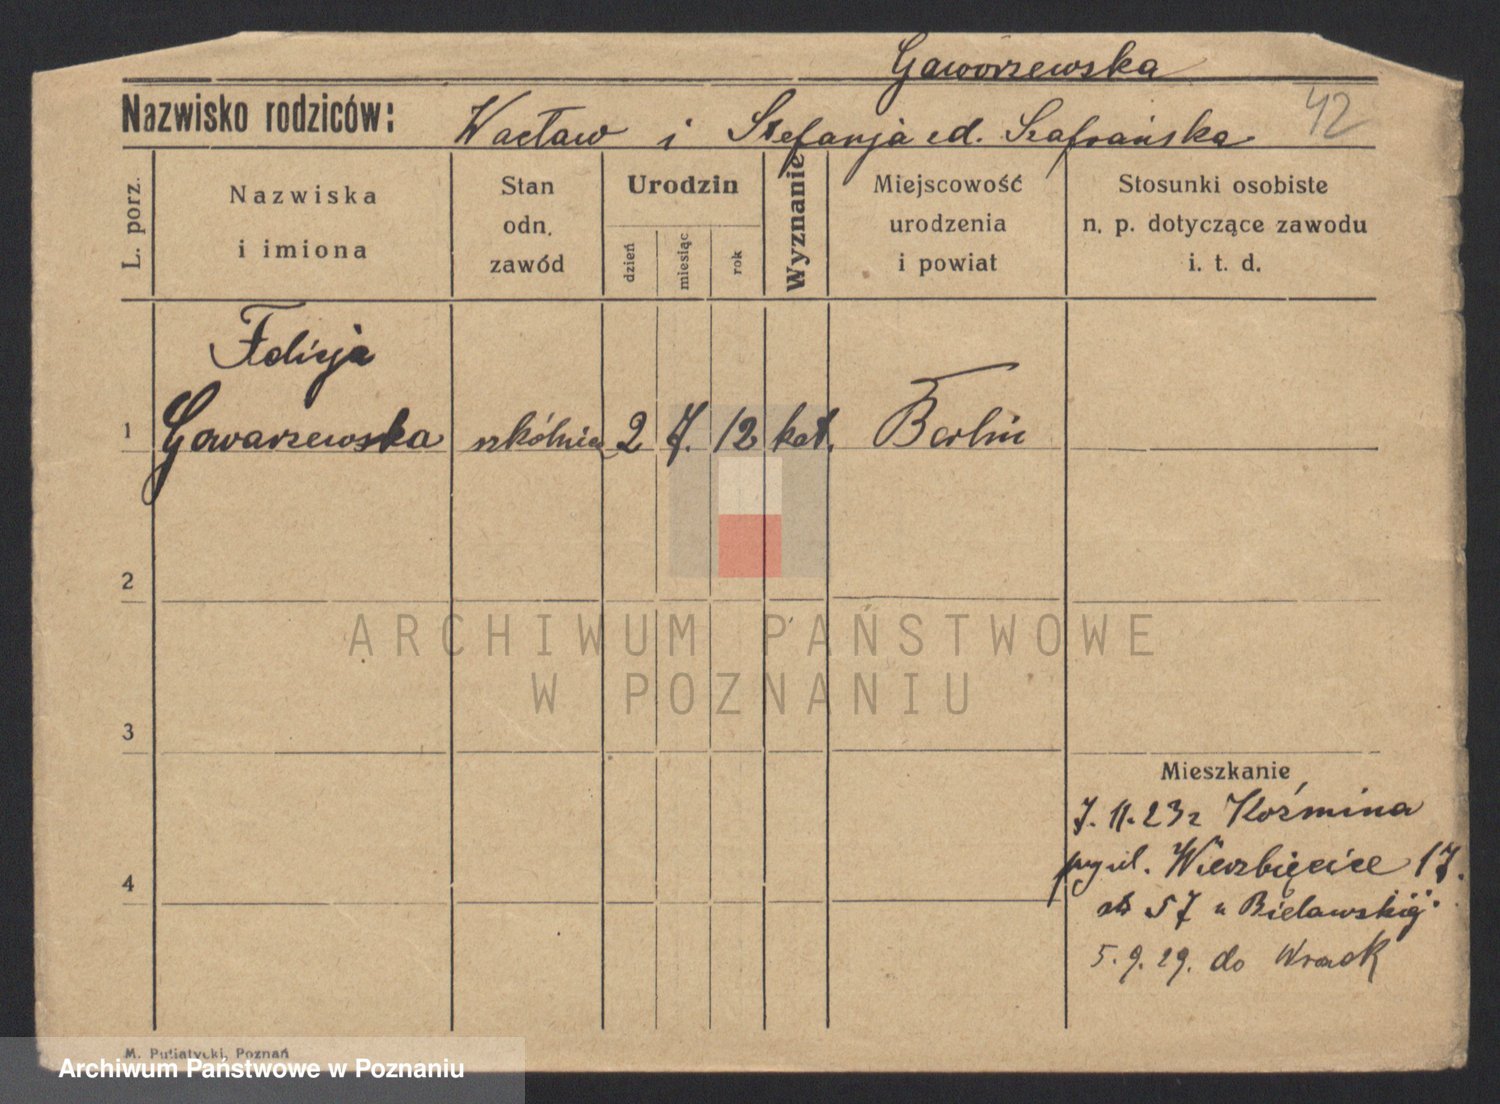 Gaworzewska
42
Nazwisko rodziców: Wacław i Stefanja cd. Szafrańska
L. porz.
Nazwiska
i imiona
Stan
odn.
zawód
Urodzin
dzień
miesiąc
rok
Wyznanie
Miejscowość
urodzenia
i powiat
Stosunki osobiste
n. p. dotyczące zawodu
i. t. d.
Felicja
1 Gowarzewska szkólnica 2 7. 12 kat. Berlin
2
ARCHIWUM PAŃSTWOWE
W POZNANIU
3
Mieszkanie
7. 11. 23 z Koźmina
Wierzbięcice 17.
57 u Bielawskiej
4
5. 9. 29. do
M. Putiatycki, Poznań
Archiwum Państwowe w Poznaniu